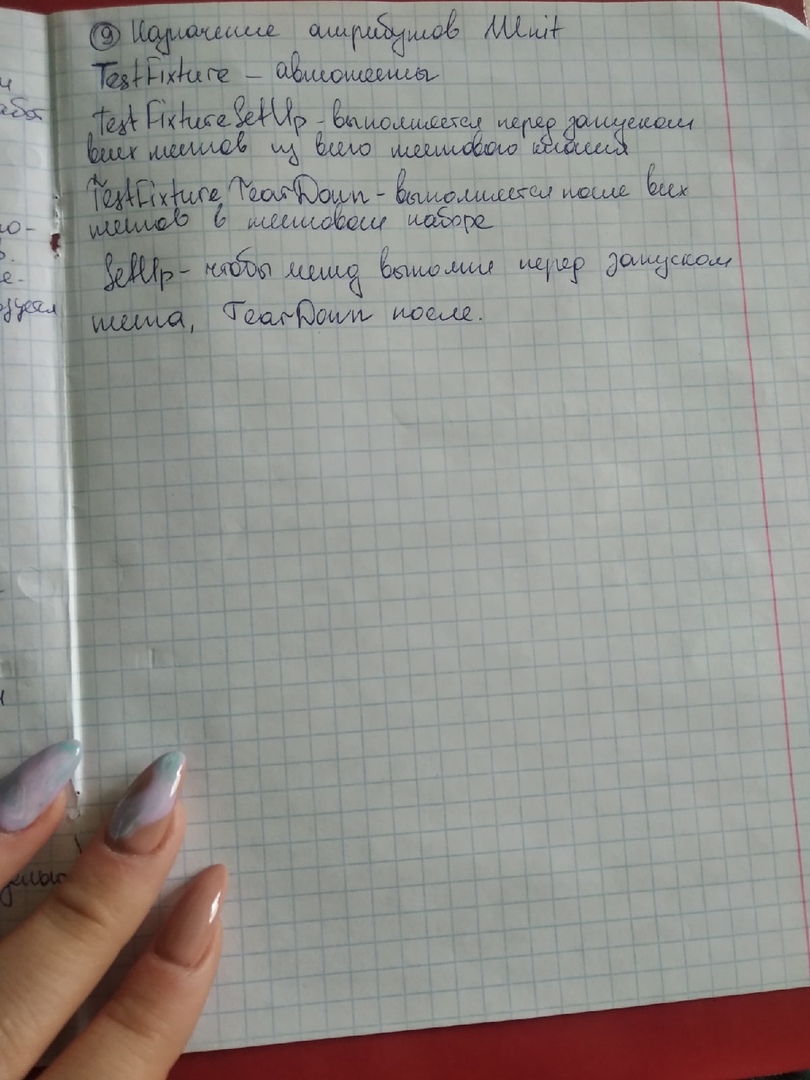 ⑨ Назначение атрибутов NUnit
TestFixture – автотесты
TestFixtureSetUp – выполняется перед запуском
всех тестов из всего тестового класса
TestFixtureTearDown – выполняется после всех
тестов в тестовом наборе
SetUp – чтобы метод выполни перед запуском
теста, TearDown после.